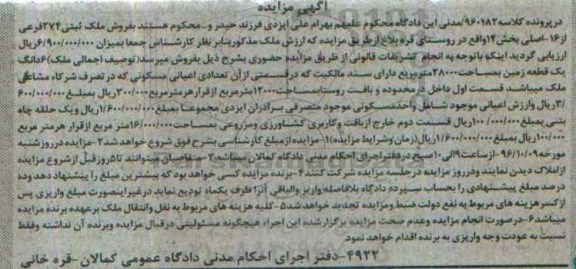 آگهی مزایده
درپرونده کلاسه ۹۶۰۱۸۲/مدنی این دادگاه محکوم علیهم بهرام علی ایزدی فرزند حیدر و-محکوم هستند بفروش ملک ثبتی ۲۷۴فرعی
از ۱۶-اصلی بخش ۱۴واقع در روستای قره بلاغ از طریق مزایده که ارزش ملک مذکور بنابر نظر کارشناس جمعا بمیزان ۶/۹۰۰/۰۰۰/۰۰۰ریال
ارزیابی گردید اینک باتوجه به انجام تشریفات قانونی از طریق مزایده حضوری بشرح ذیل بفروش میرسد(توصیف اجمالی ملک)۶دانگ
یک قطعه زمین بمساحت ۲۸۰۰۰مترمربع دارای سند مالکیت که درقسمتی از آن تعدادی اعیانی مسکونی که در تصرف شرکاء مشاعی
ملک میباشد قسمت اول داخل در محدوده و بافت روستا بمساحت ۱۲۰۰۰مترمربع از قرار هرمترمربع ۳۰۰/۰۰۰ ریال بمبلغ ۶۰۰/۰۰۰/۰۰۰
/۳ریال وارزش اعیانی موجود شامل واحد مسکونی موجود متصرفی برادران ایزدی مجموعا بمبلغ ۱/۶۰۰/۰۰۰/۰۰۰ریال و یک حلقه چاه
بتنی بمبلغ ۱۰۰/۰۰۰/۰۰۰ریال قسمت دوم خارج ازبافت وکاربری کشاورزی ومزروعی بمساحت ۱۶/۰۰۰متر مربع ازقرار هرمتر مربع
۱۰۰/۰۰۰ریال بمبلغ ۱/۶۰۰/۰۰۰/۰۰۰ریال(زمان وشرایط مزایده)۱-مزایده ازمبلغ کارشناسی بشرح فوق شروع خواهد شد۲-مزایده درروزشنبه
مورخه ۹۶/۱۰/۰۹-ازساعت ۹الی ۱۰صبح دردفتراجرای احکام مدنی دادگاه کمالان میباشد۳-متقاضیان میتوانند تا۵روزقبل ازشروع مزایده
ازاملاک دیدن نمایند ودرروز مزایده درجلسه مزایده شرکت کنند۴-برنده مزایده کسی خواهد بود که بیشترین مبلغ را پیشنهاد دهد وده
درصد مبلغ پیشنهادی را بحساب سپرده دادگاه بلافاصله واریز والباقی آنرا ظرف یکماه تودیع نماید درغیراینصورت مبلغ واریزی پس
ازکسرهزینه های مربوط به نفع دولت ضبط ومزایده تجدید خواهدشد۵-کلیه هزینه های مربوط به نقل وانتقال ملک برعهده برنده مزایده
میباشد۶-درصورت انجام مزایده وعدم صحت مزایده برگزارشده این اجراء هیچگونه مسئولیتی درقبال مزایده وبرنده آن نداشته وفقط
نسبت به عودت وجه واریزی به برنده اقدام خواهد نمود.
۴۹۲۲-دفتر اجرای احکام مدنی دادگاه عمومی کمالان -قره خانی